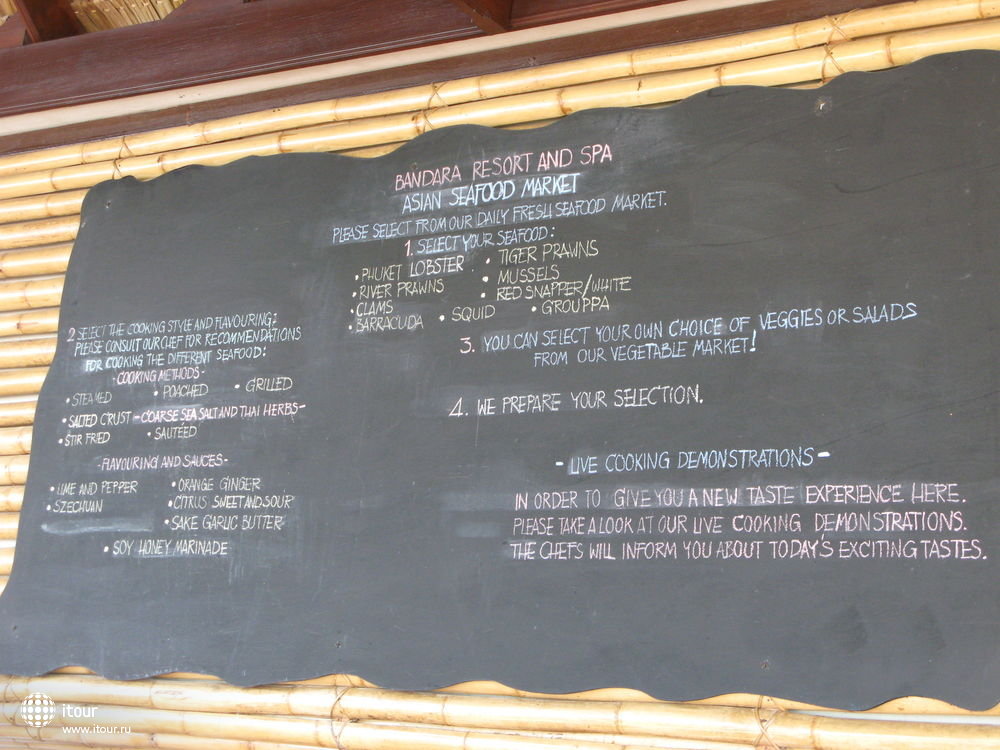 BANDARA RESORT AND SPA
ASIAN SEAFOOD MARKET
PLEASE SELECT FROM OUR DAILY FRESH SEAFOOD MARKET.
1. SELECT YOUR SEAFOOD:
• PHUKET LOBSTER • TIGER PRAWNS
• RIVER PRAWNS • MUSSELS
• CLAMS • RED SNAPPER/WHITE
• BARRACUDA • SQUID • GROUPPA
2 SELECT THE COOKING STYLE AND FLAVOURING;
PLEASE CONSULT OUR CHEF FOR RECOMMENDATIONS
FOR COOKING THE DIFFERENT SEAFOOD:
-COOKING METHODS-
• STEAMED • POACHED • GRILLED
• SALTED CRUST - COARSE SEA SALT AND THAI HERBS-
• STIR FRIED • SAUTÉED
-FLAVOURING AND SAUCES-
• LIME AND PEPPER • ORANGE GINGER
• SZECHUAN • CITRUS SWEET AND SOUR
• SAKE GARLIC BUTTER
• SOY HONEY MARINADE
3. YOU CAN SELECT YOUR OWN CHOICE OF VEGGIES OR SALADS
FROM OUR VEGETABLE MARKET!
4. WE PREPARE YOUR SELECTION.
- LIVE COOKING DEMONSTRATIONS -
IN ORDER TO GIVE YOU A NEW TASTE EXPERIENCE HERE.
PLEASE TAKE A LOOK AT OUR LIVE COOKING DEMONSTRATIONS.
THE CHEFS WILL INFORM YOU ABOUT TODAY'S EXCITING TASTES.
itour
www.itour.ru